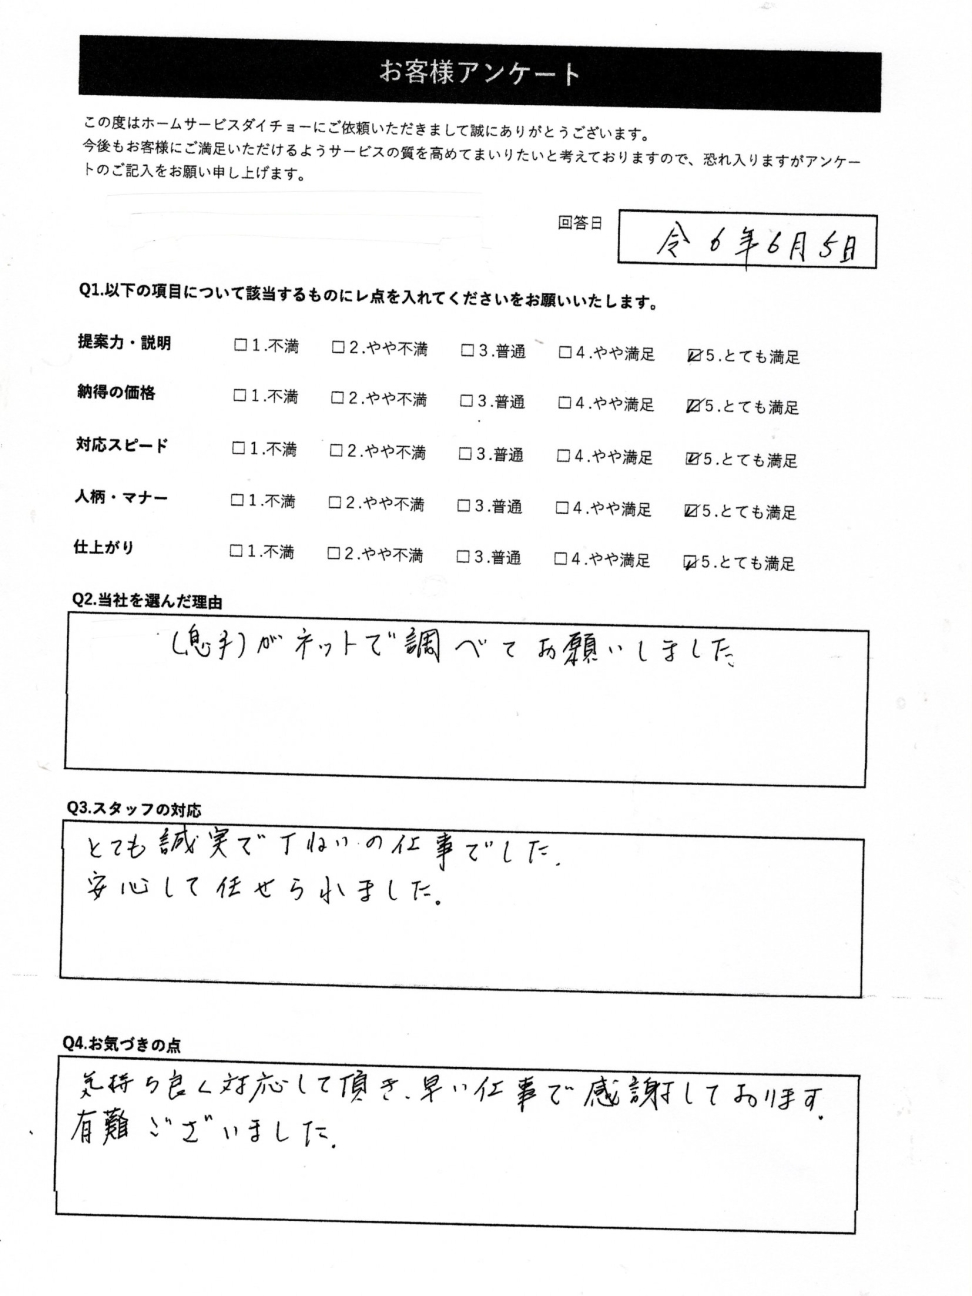 お客様アンケート
この度はホームサービスダイチョーにご依頼いただきまして誠にありがとうございます。
今後もお客様にご満足いただけるようサービスの質を高めてまいりたいと考えておりますので、恐れ入りますがアンケー
トのご記入をお願い申し上げます。
回答日 令6年6月5日
Q1.以下の項目について該当するものにレ点を入れてくださいをお願いいたします。
提案力・説明 □1.不満 □2.やや不満 □3.普通 □4.やや満足 ☑5.とても満足
納得の価格 □1.不満 □2.やや不満 □3.普通 □4.やや満足 ☑5.とても満足
対応スピード □1.不満 □2.やや不満 □3.普通 □4.やや満足 ☑5.とても満足
人柄・マナー □1.不満 □2.やや不満 □3.普通 □4.やや満足 ☑5.とても満足
仕上がり □1.不満 □2.やや不満 □3.普通 □4.やや満足 ☑5.とても満足
Q2.当社を選んだ理由
(息子)がネットで調べてお願いしました。
Q3.スタッフの対応
とても誠実で丁ねいの仕事でした。
安心して任せられました。
Q4.お気づきの点
気持ち良く対応して頂き、早い仕事で感謝しております。
有難ございました。